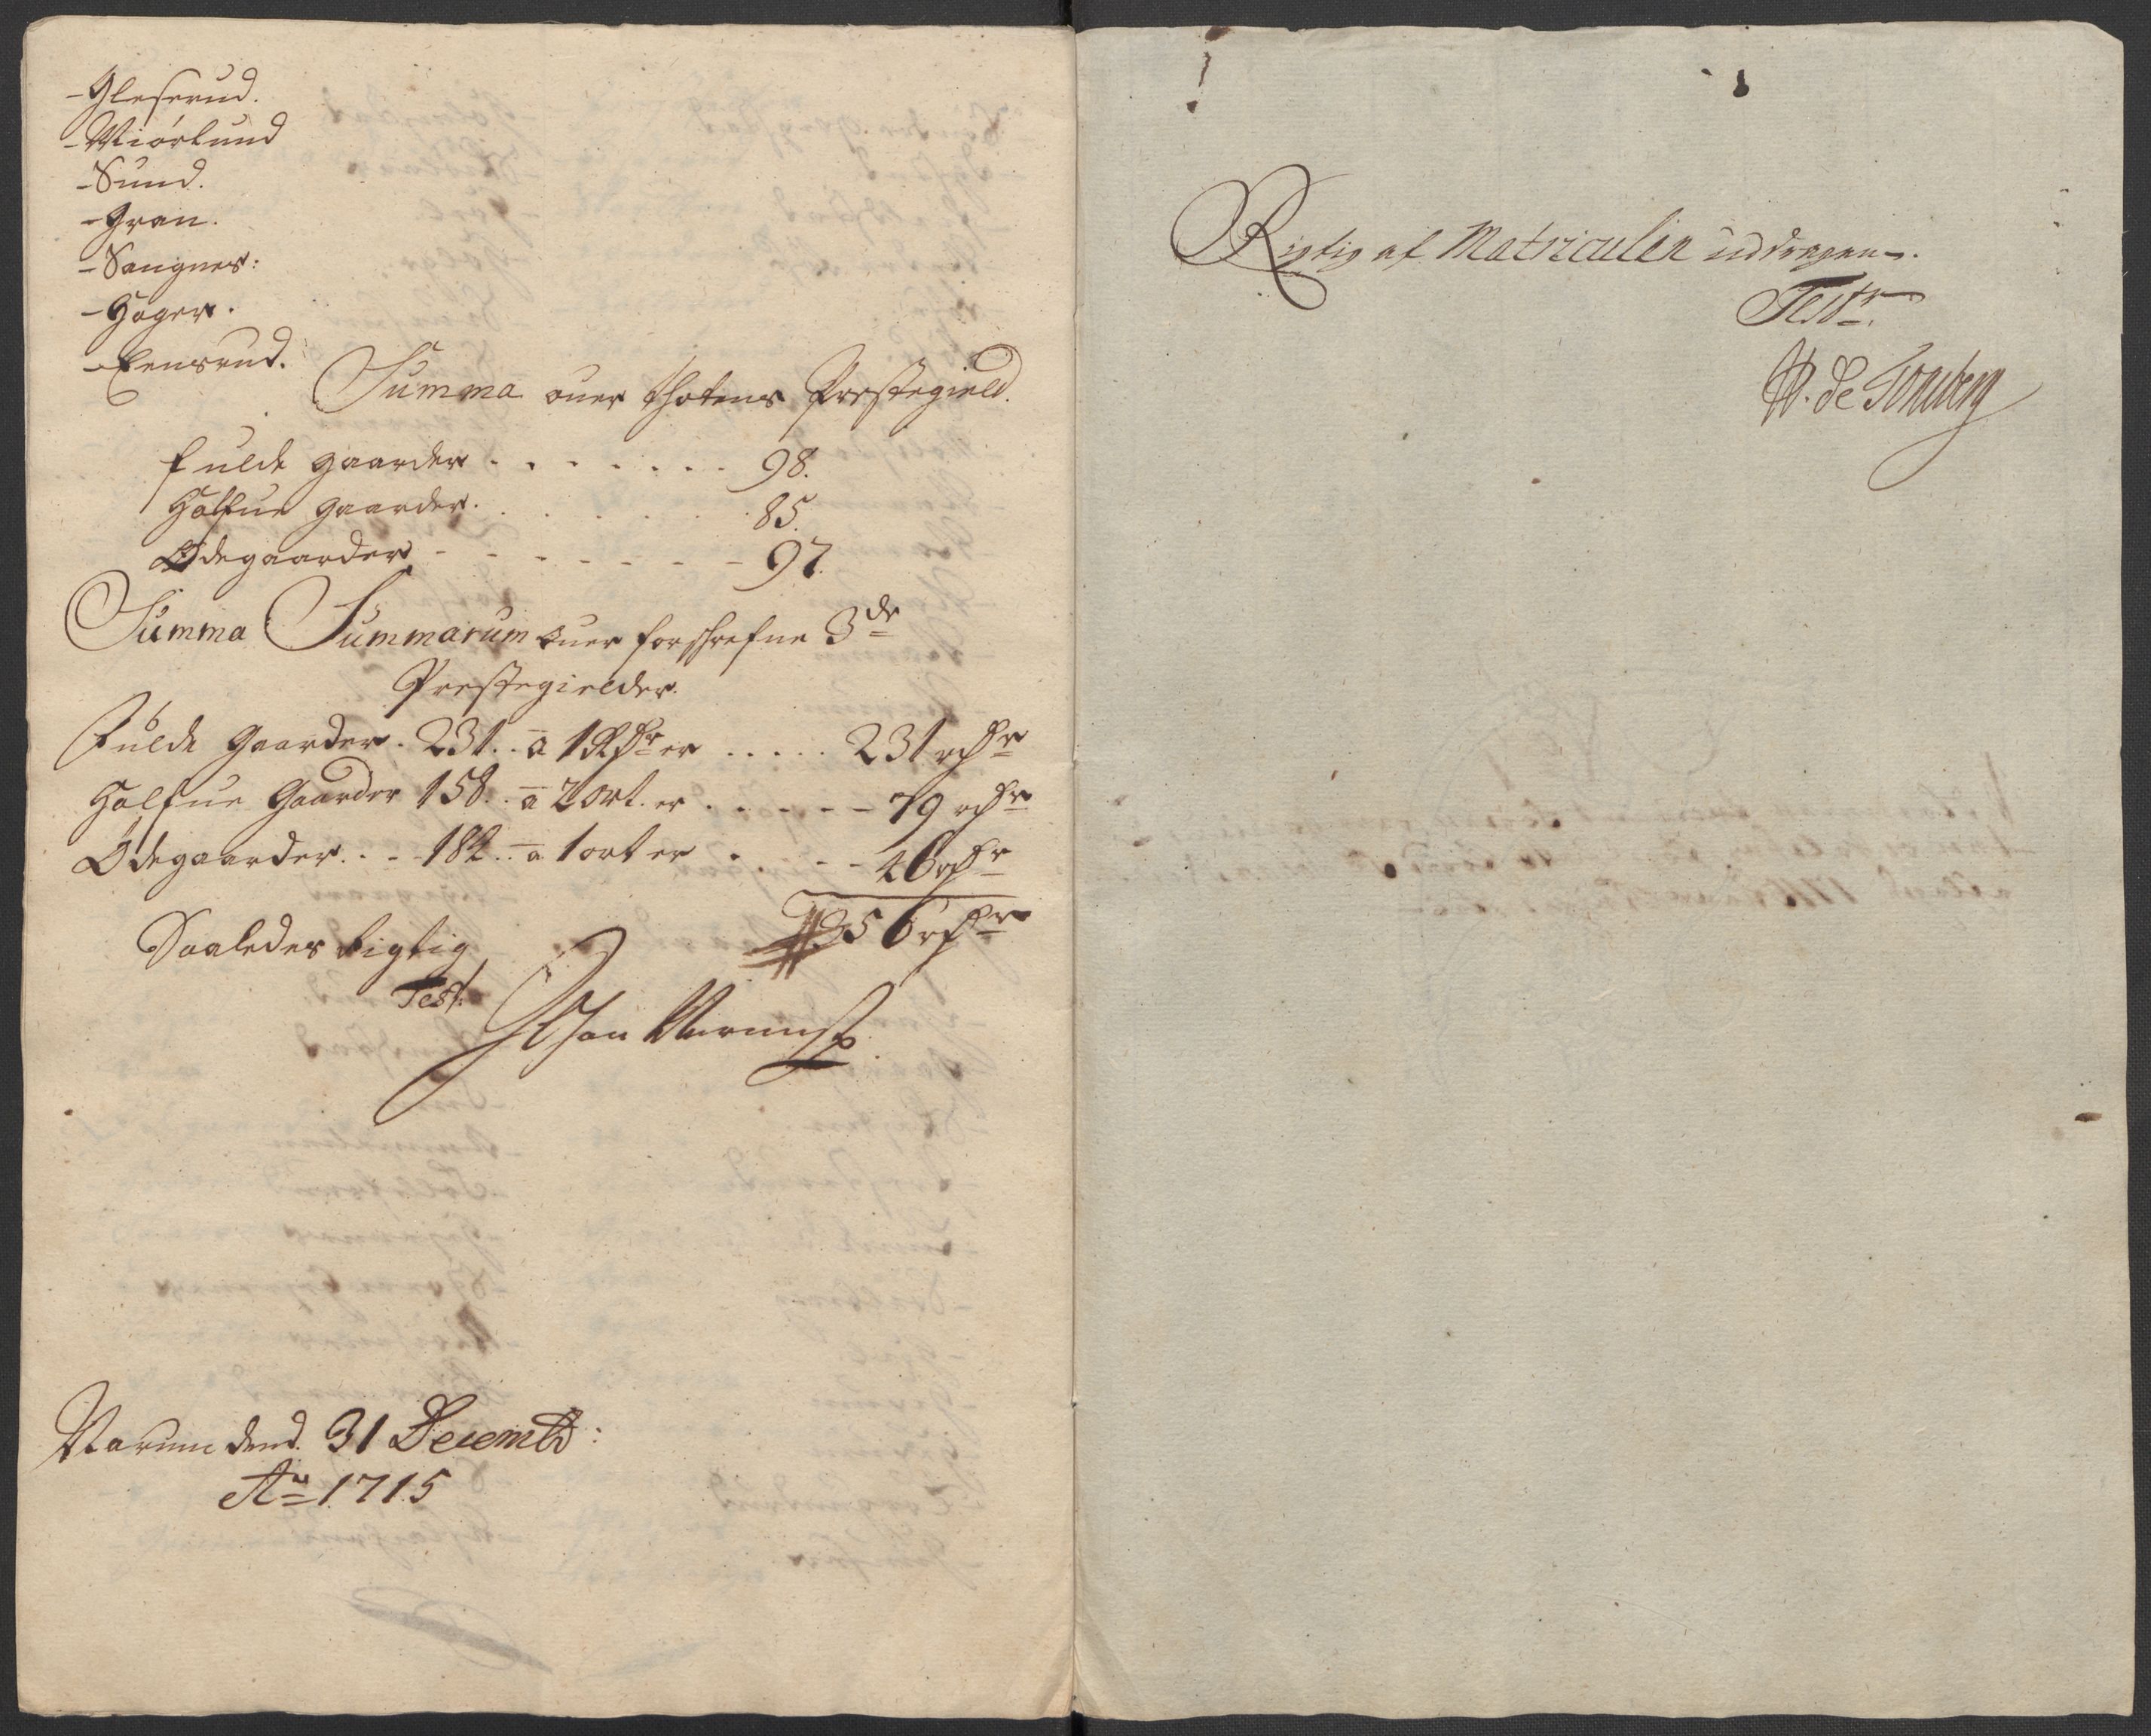 - Gleserud.
- Miørlund
- Sund.
- Gran.
- Sangnes:
- Hager.
- Eensrud.
Summa ouer Thotens Prestegield.
fulde gaarder . . . . . . . 98.
Halfue gaarder. . . . . . . 85.
Ødegaarder - - - - - - - 97.
Summa Summarum ouer forschrefne 3de
Prestegielder.
Fulde Gaarder. 231. . a 1 Rdr er . . . . . 231 rdr
Halfue Gaarder 158. . a 2 ort. er . . - - - 79 rdr
Ødegaarder. . - - 182. . a 1 ort er . . - - 46 rdr
356 rdr
Saaledes Rigtig
Test:
Narum dend. 31 Decembr:
Ao 1715
Rigtig af Matriculen uddragen.
Test